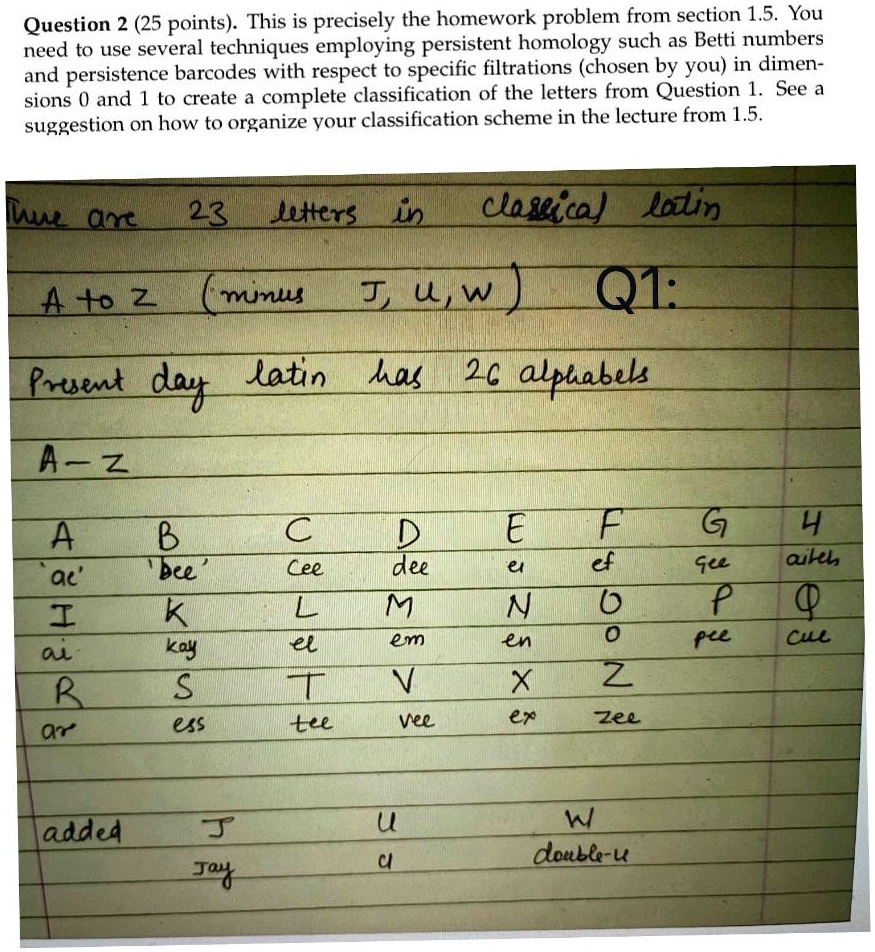 Question 2 (25 points). This is precisely the homework problem from section 1.5. You
need to use several techniques employing persistent homology such as Betti numbers
and persistence barcodes with respect to specific filtrations (chosen by you) in dimen-
sions 0 and 1 to create a complete classification of the letters from Question 1. See a
suggestion on how to organize your classification scheme in the lecture from 1.5.
There are 23 letters in classical latin
A to Z (minus J, U, W) Q1:
Present day latin has 26 alphabels
A - Z
A B C D E F G H
'ae' 'bee' cee dee ef gee aitch
I K L M N O P Q
ai kay el em en o pee cue
R S T V X Z
ar ess tee vee ex zee
added J U W
Jay double-u